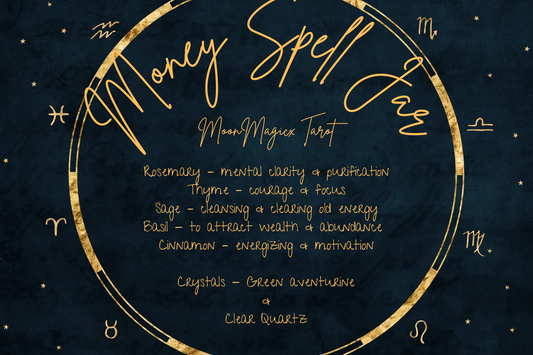 Money Spell Jar
MoonMagicx Tarot
Rosemary - mental clarity & purification
Thyme - courage & focus
Sage - cleansing & clearing old energy
Basil - to attract wealth & abundance
Cinnamon - energizing & motivation
Crystals - Green aventurine
&
Clear Quartz